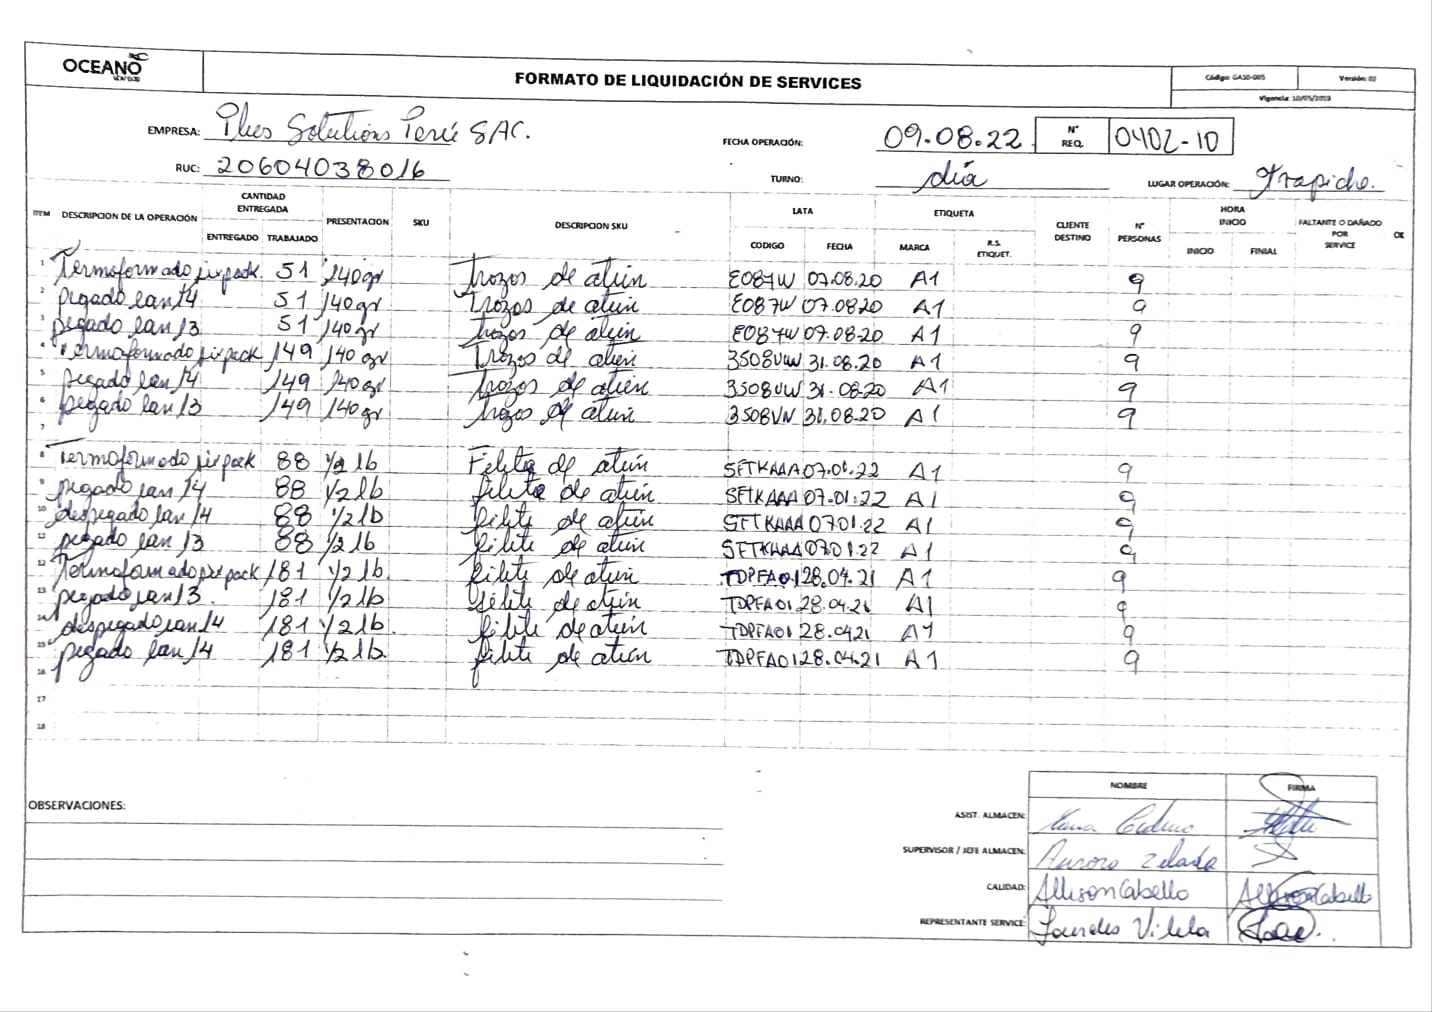 OCEANO
FORMATO DE LIQUIDACIÓN DE SERVICES
Código: GA50-G05
Versión: 02
Vigencia: 10/05/2019
EMPRESA: Plus Solutions Perú SAC.
FECHA OPERACIÓN: 09.08.22
N° REQ. 0402-10
RUC: 20604038016
TURNO: día
LUGAR OPERACIÓN: Trapiche.
ITEM DESCRIPCION DE LA OPERACIÓN CANTIDAD ENTREGADA PRESENTACION SKU DESCRIPCION SKU LATA ETIQUETA CLIENTE DESTINO N° PERSONAS HORA INICIO FALTANTE O DAÑADO POR SERVICE
ENTREGADO TRABAJADO CODIGO FECHA MARCA R.S. ETIQUET. INICIO FINIAL
1 Termoformado sixpack 51 140gr Trozos de atún E087W 07.08.20 A1 9
2 pegado lan 14 51 140gr Trozos de atún E087W 07.0820 A1 9
3 pegado lan 13 51 140gr trozos de atún E087W 07.08.20 A1 9
4 Termoformado sixpack 149 140 gr Trozos de atún 3508VW 31.08.20 A1 9
5 pegado lan 14 149 140gr Trozos de atún 3508VW 31.08.20 A1 9
6 pegado lan 13 149 140gr trozos de atún 3508VN 31.08.20 A1 9
7
8 Termoformado sixpack 88 1/2 lb Filete de atún SFTKAAA 07.01.22 A1 9
9 pegado lan 14 88 1/2 lb filete de atún SFTKAAA 07.01.22 A1 9
10 despegado lan 14 88 1/2 lb filete de atún SFTKAAA 0701.22 A1 9
pegado lan 13 88 1/2 lb filete de atún SFTKAAA 0701.22 A1 9
12 Termoformado sixpack 181 1/2 lb filete de atún TDPFA01 28.04.21 A1 9
13 pegado lan 13. 181 1/2 lb filete de atún TDPFA01 28.04.21 A1 9
14 despegado lan 14 181 1/2 lb. filete de atún TDPFA01 28.0421 A1 9
15 pegado lan 14 181 1/2 lb. filete de atún TDPFA01 28.04.21 A1 9
16
17
18
NOMBRE FIRMA
OBSERVACIONES:
ASIST. ALMACEN:
SUPERVISOR / JEFE ALMACEN: Aurora Zelada
CALIDAD: Allison Cabello Allison Cabello
REPRESENTANTE SERVICE: Lourdes Vilela